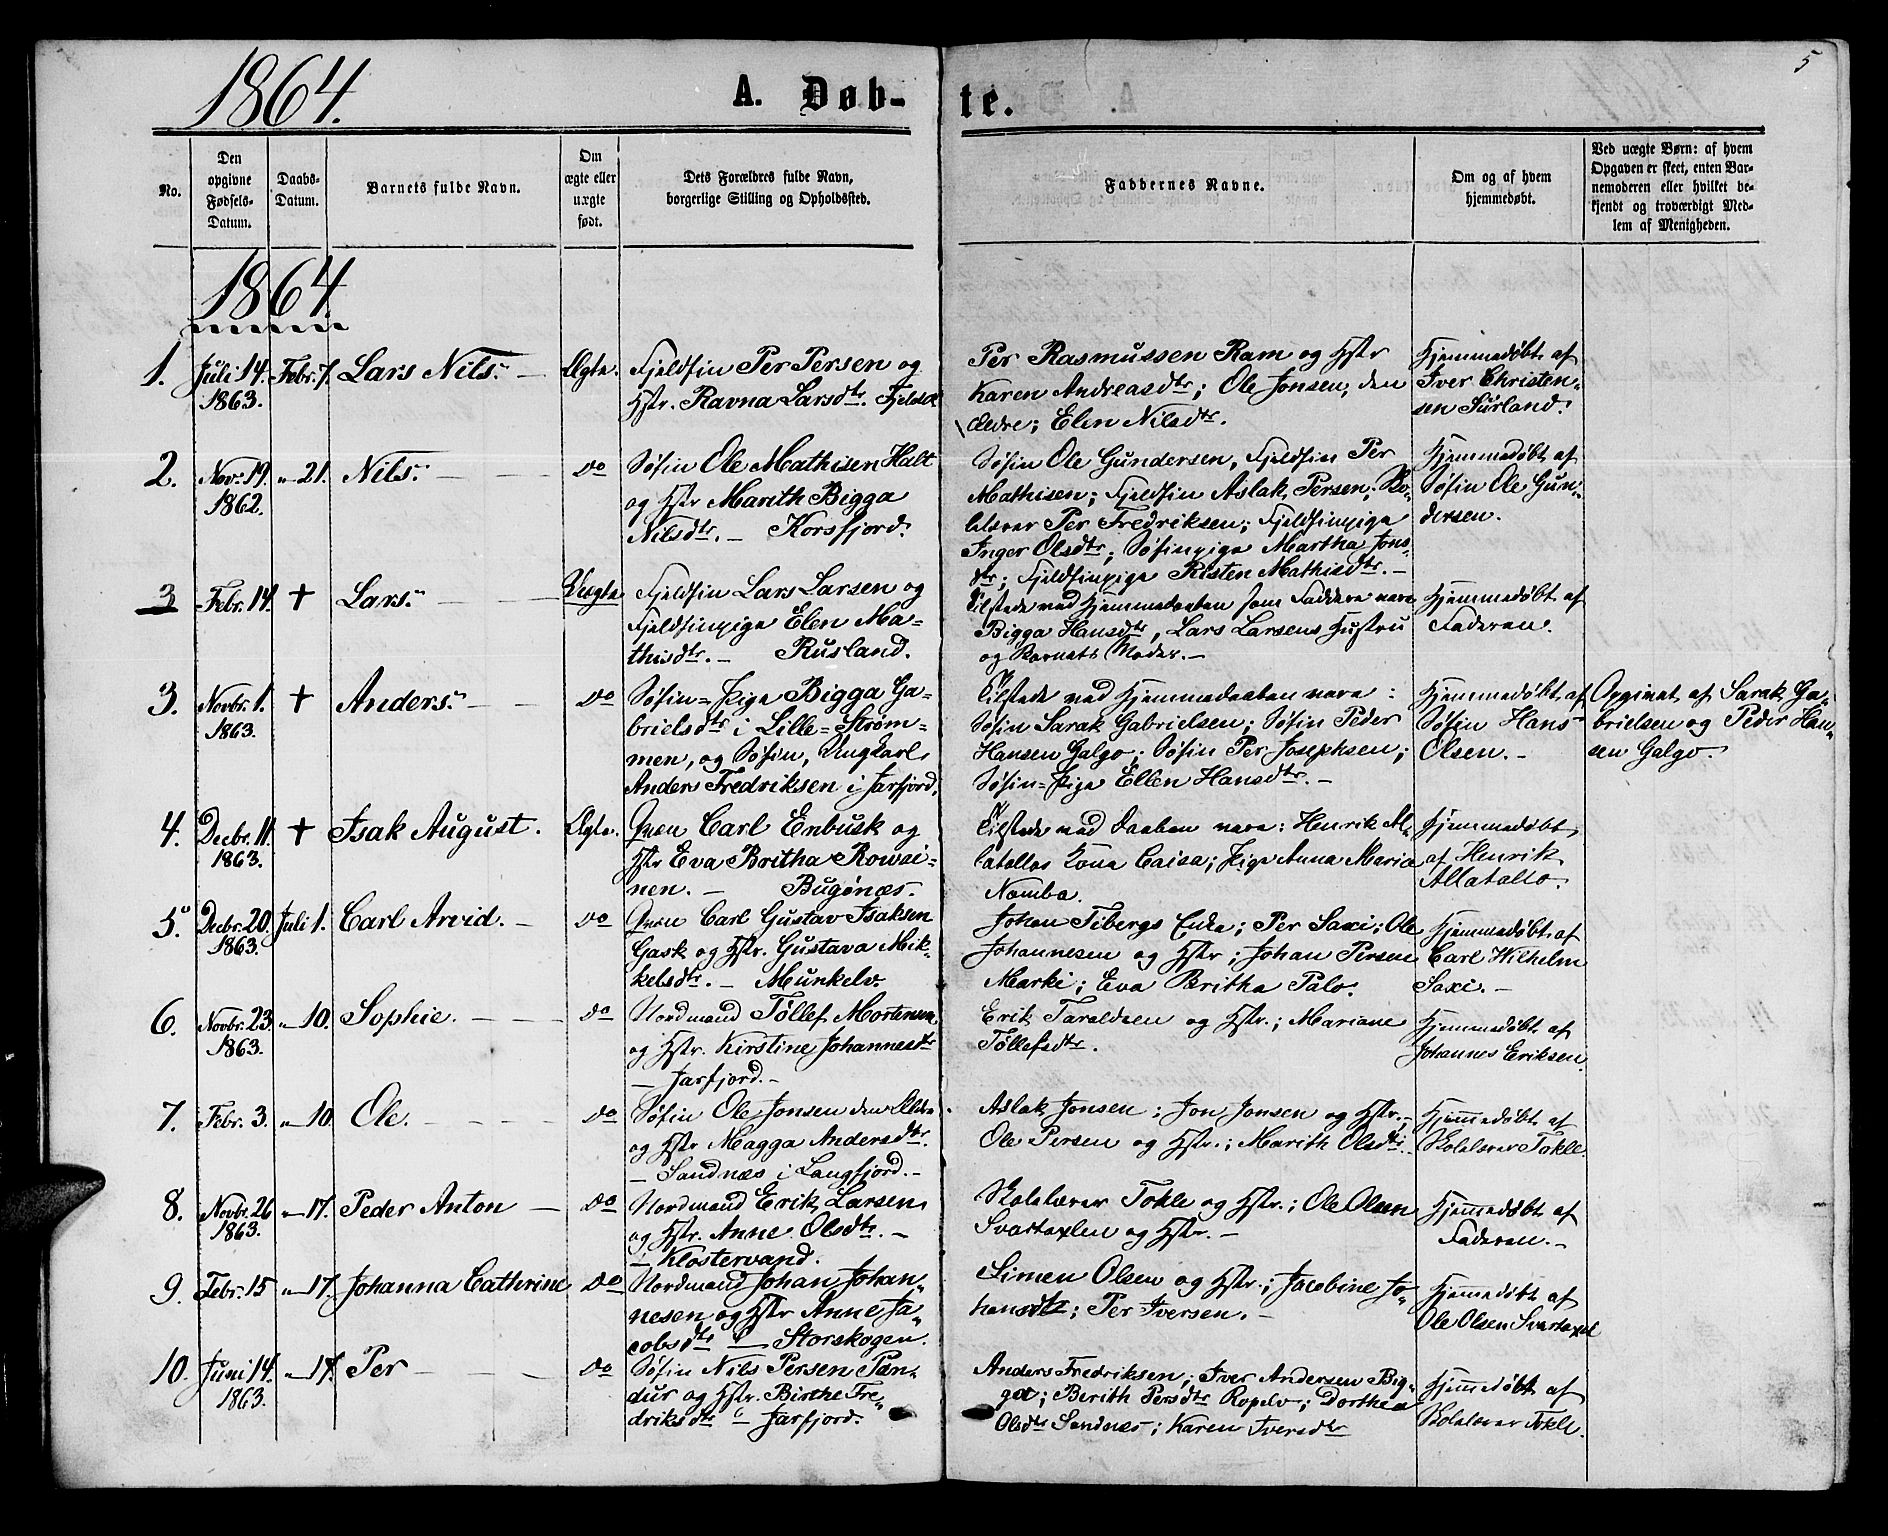 5
1864.
A. Døb-
te.
No.
Den
opgivne
Fødsels-
Datum.
Daabs-
Datum.
Barnets fulde Navn.
Om
ægte eller
uægte
født.
Dets Forældres fulde Navn,
borgerlige Stilling og Opholdssted.
Faddernes Navne.
Om og af hvem
hjemmedøbt.
Ved uægte Børn: af hvem
Opgaven er skeet, enten Bar-
nemoderen eller hvilket be-
kjendt og troværdigt Med-
lem af Menigheden.
1864.
1. Juli 14. Febr. 7. Lars Nils. Ægte.
1863.
Fjeldfin Per Persen og
Hstr. Ravna Larsdtr. Fjeldet
Per Rasmussen Ram og Hstr
Karen Andreasdtr; Ole Jonsen, den
Ældre; Elen Nilsdtr.
Hjemmedøbt af
Iver Christen-
sen Surland.
2. Novr. 19. " 21. Nils. do
1862.
Søfin Ole Mathisen Halt
og Hstr Marith Bigga
Nilsdtr. Korsfjord.
Søfin Ole Gundersen, Fjeldfin Per
Mathisen; Fjeldfin Aslak Persen; Sko-
lelærer Per Fredriksen; Fjeldfinpige
Inger Olsdtr; Søfinpige Martha Jons-
dtr; Fjeldfinpige Risten Mathisdtr.
Hjemmedøbt af
Søfin Ole Gun-
dersen.
3 Febr. 14. + Lars. Uægte
Fjeldfin Lars Larsen og
Fjeldfinpige Elen Ma-
thisdtr. Rusland.
Tilstede ved Hjemmedaaben som Faddere vare
Bigga Hansdtr, Lars Larsens Hustru
og Barnets Moder.
Hjemmedøbt af
Faderen.
3. Novbr. 1. + Anders. do
1863.
Søfin-Pige Bigga Ga-
brielsdtr i Lille-Strøm-
men, og Søfin, Ungkarl
Anders Fredriksen i Jarfjord.
Tilstede ved Hjemmedaaben vare:
Søfin Sarak Gabrielsen; Søfin Peder
Hansen Galgo; Søfin Per Josephsen;
Søfin-Pige Ellen Hansdtr.
Hjemmedøbt af
Søfin Hans
Olsen.
Opgivet af Sarak Ga-
brielsen og Peder Han-
sen Galgo.
4. Decbr. 11. + Isak August. Ægte.
1863.
Qvæn Carl Enbusk og
Hstr Eva Britha Rowai-
nen. Bugønæs.
Tilstede ved Daaben vare: Henrik Al-
latallos Kone Caisa; Pige Anna Maria
Namba.
Hjemmedøbt
af Henrik
Allatallo.
5. Decbr. 20. Juli 1. Carl Arvid. do
1863.
Qvæn Carl Gustav Isaksen
Gask og Hstr. Gustava Mik-
kelsdtr. Munkelv.
Johan Tibergs Enke; Per Saxi; Ole
Johannesen og Hstr; Johan Persen
Marki; Eva Britha Palo.
Hjemmedøbt af
Carl Wilhelm
Saxi.
6. Novbr. 23. " 10. Sophie. do
1863.
Nordmand Töllef Mortensen
og Hstr. Kirstine Johannesdtr
Jarfjord.
Erik Taraldsen og Hstr.; Mariane
Töllefsdtr.
Hjemmedøbt af
Johannes Eriksen.
7. Febr. 3. " 10. Ole. do
Søfin Ole Jonsen den Ældre
og Hstr Magga Andersdtr.
Sandnæs i Langfjord.
Aslak Jonsen; Jon Jonsen og Hstr.;
Ole Persen og Hstr.; Marith Olsdtr.
Hjemmedøbt af
Skolelærer Tokle.
8. Novbr. 26 " 17. Peder Anton do
1863.
Nordmand Erik Larsen
og Hstr. Anne Olsdtr.
i Klostervand.
Skolelærer Tokle og Hstr.; Ole Olsen
Svartaxlen og Hstr.
Hjemmedøbt af
Faderen.
9. Febr. 15 " 17. Johanna Cathrine do
Nordmand Johan Johan-
nesen og Hstr Anne Ja-
cobsdtr i Storskogen.
Simen Olsen og Hstr.; Jacobine Jo-
hansdtr; Per Iversen.
Hjemmedøbt af
Ole Olsen Svartaxel
10. Juni 14. " 17. Per do
1863.
Søfin Nils Persen Pan-
dur og Hstr. Birthe Fre-
driksdtr i Jarfjord.
Anders Fredriksen; Iver Andersen Big-
ga; Berith Persdtr Ropelv; Dorthea
Olsdtr Sandnæs; Karen Iversdtr
Hjemmedøbt af
Skolelærer Tokle.